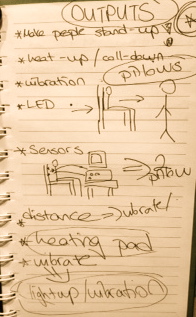 OUTPUTS
* Make people stand-up
* heat-up / cool-down
pillows
* vibration
* LED
* Sensors
pillow
* distance => vibrate/
* heating pad
* vibrate
light up / vibration